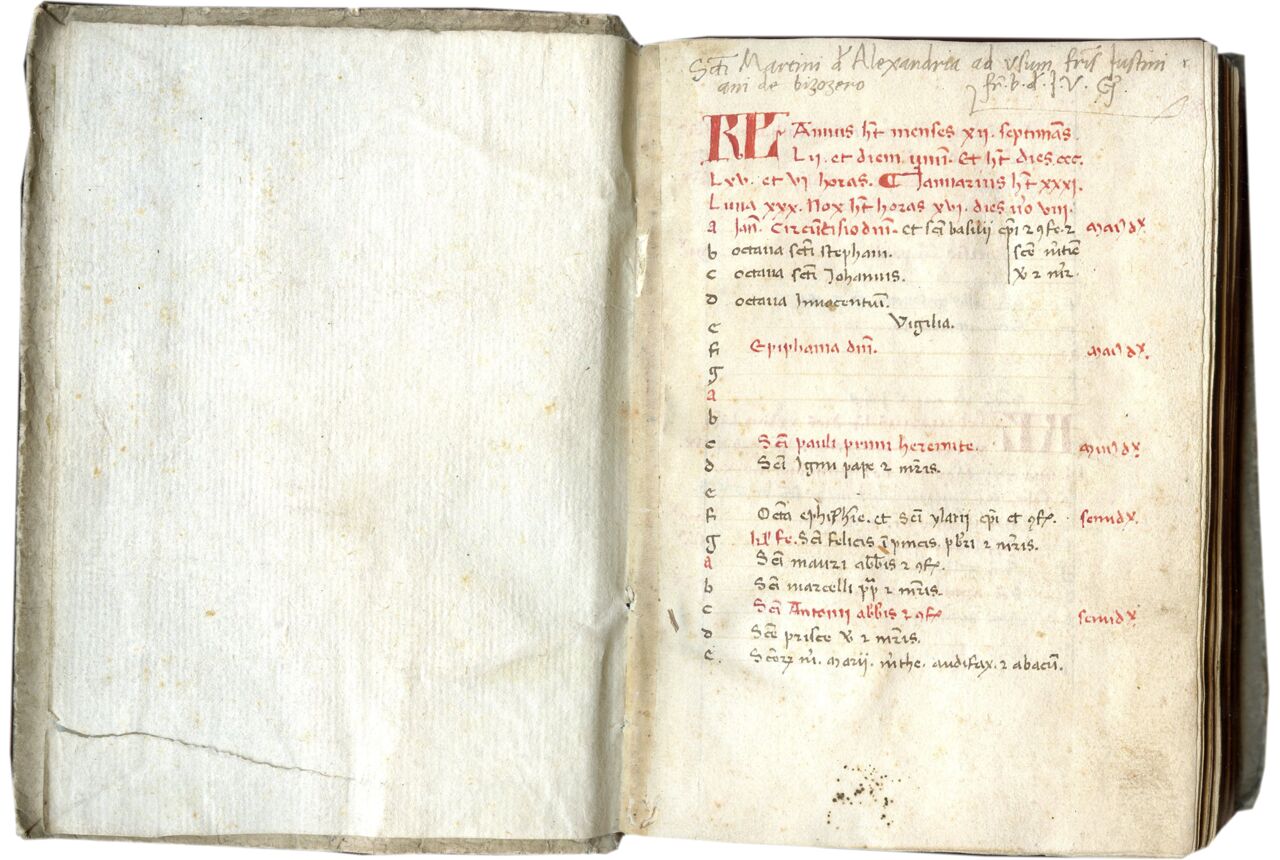 Scti Martini d Alexandria ad vsum fris Iustini
ani de bizozero fr. b. d. J. V.
KL Annus ht menses xii. septimas
Lii. et diem unu. Et ht dies ccc.
Lxv. et vi horas. Ianuarius ht xxxi.
Luna xxx. Nox ht horas xvi. dies uo viii.
a Ian. Circucisio dni. et sci basilii epi z 9fe. z maiꝰ dx
b octaua scti stephani. sce mtie
c octaua scti Iohannis. v z mr.
d octaua Innocentiu.
e Vigilia.
f Epiphania dni. maiꝰ dx.
g
a
b
c Sci pauli primi heremite. dx
d Sci Igini pape z mris.
e
f Octa ephihie. et Sci ylarii epi et 9f. semidx.
g Sci felicis i pincis. pbri z mris.
a Sci mauri abbis z 9f.
b Sci marcelli pp z mris.
c Sci Antonii abbis z 9f semidx
d Sce prisce v z mris.
e. Scorz m. marii. mthe. audifax. z abacu.